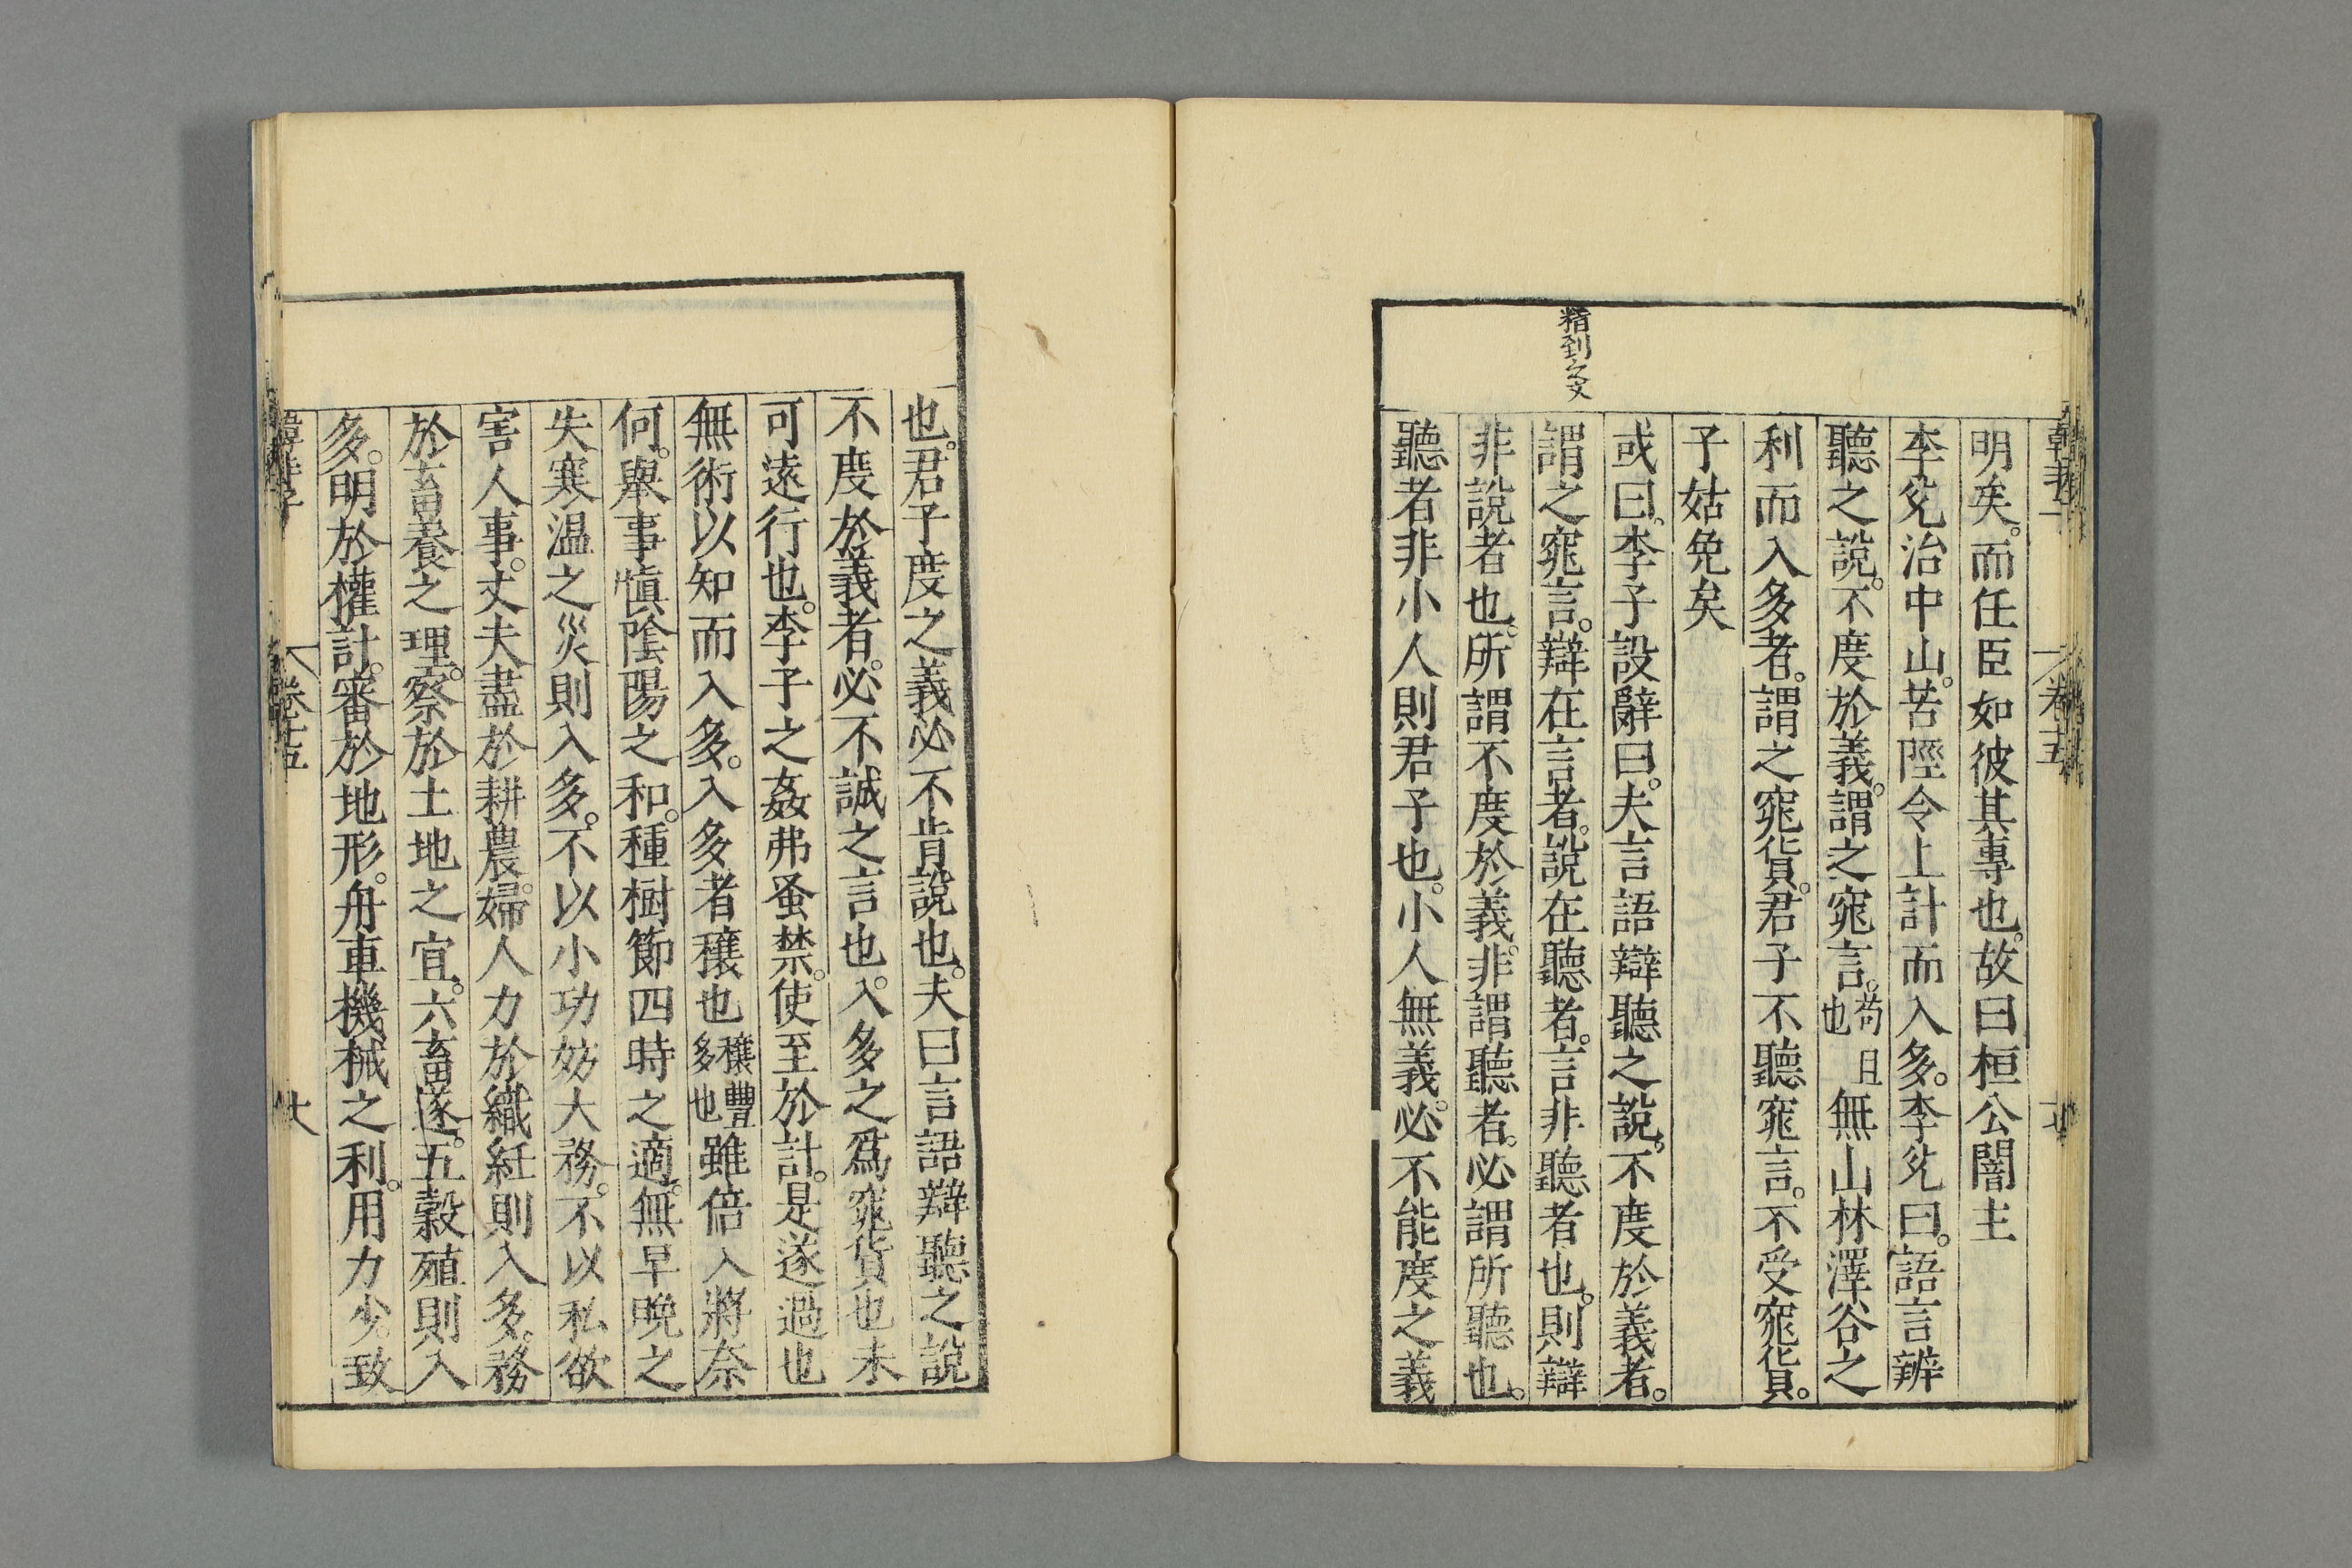 明矣。而任臣如彼其專也。故曰桓公闇主
李兊治中山。苦陘令上計而入多。李兊曰。語言辨
聽之說。不度於義。謂之窕言。苟且也無山林澤谷之
利而入多者。謂之窕貨。君子不聽窕言。不受窕貨。
子姑免矣
或曰。李子設辭曰。夫言語辯聽之說。不度於義者。
精到之文
謂之窕言。辯在言者。說在聽者。言非聽者也。則辯
非說者也。所謂不度於義。非謂聽者。必謂所聽也。
聽者非小人則君子也。小人無義。必不能度之義
也。君子度之義必不肯說也。夫曰言語辯聽之說
不度於義者。必不誠之言也。入多之爲窕貨也未
可遠行也。李子之姦弗蚤禁。使至於計。是遂過也
無術以知而入多。入多者穰也穰豐多也雖倍入將奈
何。舉事愼陰陽之和。種樹節四時之適。無早晚之
失寒溫之災則入多。不以小功妨大務。不以私欲
害人事。丈夫盡於耕農。婦人力於織紝則入多。務
於畜養之理。察於土地之宜。六畜遂。五穀殖則入
多。明於權計。審於地形。舟車機械之利。用力少。致
韓非子 卷十五